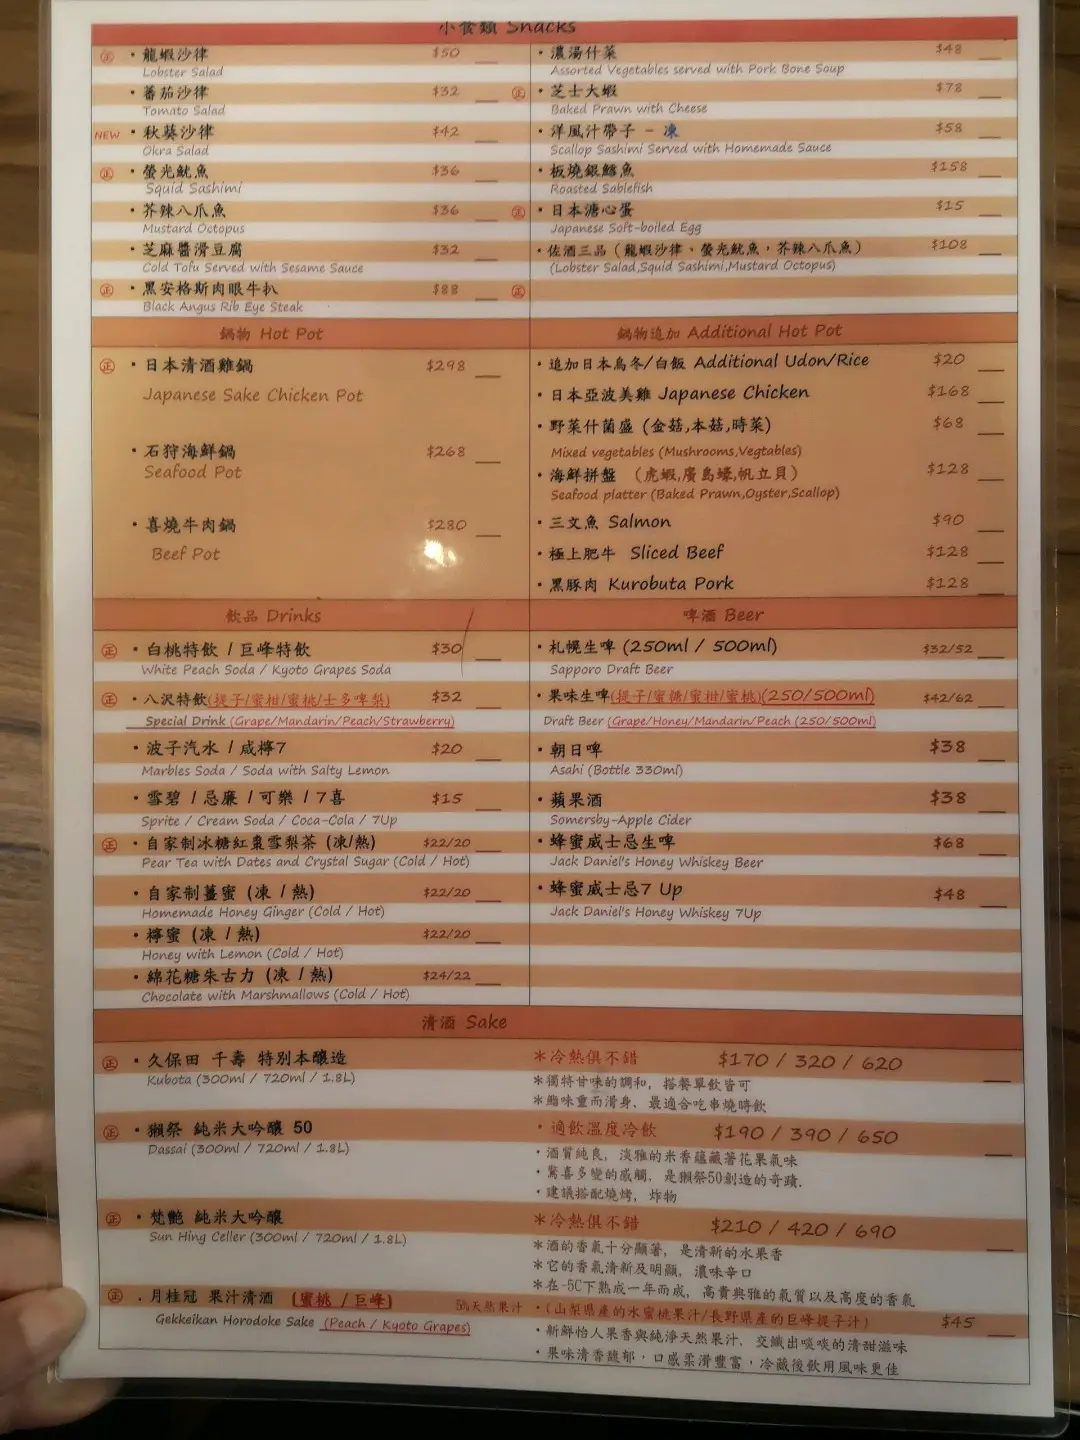 小食類 Snacks
㊣ ・龍蝦沙律 $50
Lobster Salad
・蕃茄沙律 $32
Tomato Salad
NEW ・秋葵沙律 $42
Okra Salad
㊣ ・螢光魷魚 $36
Squid Sashimi
・芥辣八爪魚 $36
Mustard Octopus
・芝麻醬滑豆腐 $32
Cold Tofu Served with Sesame Sauce
㊣ ・黑安格斯肉眼牛扒 $88
Black Angus Rib Eye Steak
・濃湯什菜 $48
Assorted Vegetables served with Pork Bone Soup
㊣ ・芝士大蝦 $78
Baked Prawn with Cheese
・洋風汁帶子 - 凍 $58
Scallop Sashimi Served with Homemade Sauce
・板燒銀鱈魚 $158
Roasted Sablefish
㊣ ・日本溏心蛋 $15
Japanese Soft-boiled Egg
・佐酒三品（龍蝦沙律、螢光魷魚，芥辣八爪魚） $108
(Lobster Salad,Squid Sashimi,Mustard Octopus)
㊣
鍋物 Hot Pot
㊣ ・日本清酒雞鍋 $298
Japanese Sake Chicken Pot
・石狩海鮮鍋 $268
Seafood Pot
・喜燒牛肉鍋 $280
Beef Pot
鍋物追加 Additional Hot Pot
・追加日本烏冬/白飯 Additional Udon/Rice $20
・日本亞波美雞 Japanese Chicken $168
・野菜什菌盛 (金菇,本菇,時菜) $68
Mixed vegetables (Mushrooms,Vegtables)
・海鮮拼盤 （虎蝦,廣島蠔,帆立貝） $128
Seafood platter (Baked Prawn,Oyster,Scallop)
・三文魚 Salmon $90
・極上肥牛 Sliced Beef $128
・黑豚肉 Kurobuta Pork $128
飲品 Drinks
㊣ ・白桃特飲 / 巨峰特飲 $30
White Peach Soda / Kyoto Grapes Soda
㊣ ・八沢特飲(提子/蜜柑/蜜桃/士多啤梨) $32
Special Drink (Grape/Mandarin/Peach/Strawberry)
・波子汽水 / 咸檸7 $20
Marbles Soda / Soda with Salty Lemon
・雪碧 / 忌廉 / 可樂 / 7喜 $15
Sprite / Cream Soda / Coca-Cola / 7Up
㊣ ・自家制冰糖紅棗雪梨茶 (凍/熱) $22/20
Pear Tea with Dates and Crystal Sugar (Cold / Hot)
・自家制薑蜜 (凍 / 熱) $22/20
Homemade Honey Ginger (Cold / Hot)
・檸蜜 (凍 / 熱) $22/20
Honey with Lemon (Cold / Hot)
・綿花糖朱古力 (凍 / 熱) $24/22
Chocolate with Marshmallows (Cold / Hot)
啤酒 Beer
・札幌生啤 (250ml / 500ml) $32/52
Sapporo Draft Beer
・果味生啤(提子/蜜糖/蜜柑/蜜桃)(250/500ml) $42/62
Draft Beer (Grape/Honey/Mandarin/Peach (250/500ml)
・朝日啤 $38
Asahi (Bottle 330ml)
・蘋果酒 $38
Somersby-Apple Cider
・蜂蜜威士忌生啤 $68
Jack Daniel's Honey Whiskey Beer
・蜂蜜威士忌7 Up $48
Jack Daniel's Honey Whiskey 7Up
清酒 Sake
㊣ ・久保田 千壽 特別本釀造 *冷熱俱不錯 $170 / 320 / 620
Kubota (300ml / 720ml / 1.8L) *獨特甘味的調和，搭餐單飲皆可
*鮨味重而滑身，最適合吃串燒時飲
㊣ ・獺祭 純米大吟釀 50 ・適飲溫度冷飲 $190 / 390 / 650
Dassai (300ml / 720ml / 1.8L) ・酒質純良，淡雅的米香蘊藏著花果氣味
・驚喜多變的感觸，是獺祭50創造的奇蹟.
・建議搭配燒烤，炸物
㊣ ・梵艶 純米大吟釀 *冷熱俱不錯 $210 / 420 / 690
Sun Hing Celler (300ml / 720ml / 1.8L) *酒的香氣十分顯著，是清新的水果香
*它的香氣清新及明顯，濃味辛口
*在-5C下熟成一年而成，高貴典雅的氣質以及高度的香氣
㊣ ．月桂冠 果汁清酒 (蜜桃 / 巨峰) 50%天然果汁 ・(山梨県產的水蜜桃果汁/長野県產的巨峰提子汁) $45
Gekkeikan Horodoke Sake (Peach / Kyoto Grapes) ・新鮮怡人果香與純淨天然果汁，交織出啖啖的清甜滋味
・果味清香馥郁，口感柔滑豐富，冷藏後飲用風味更佳